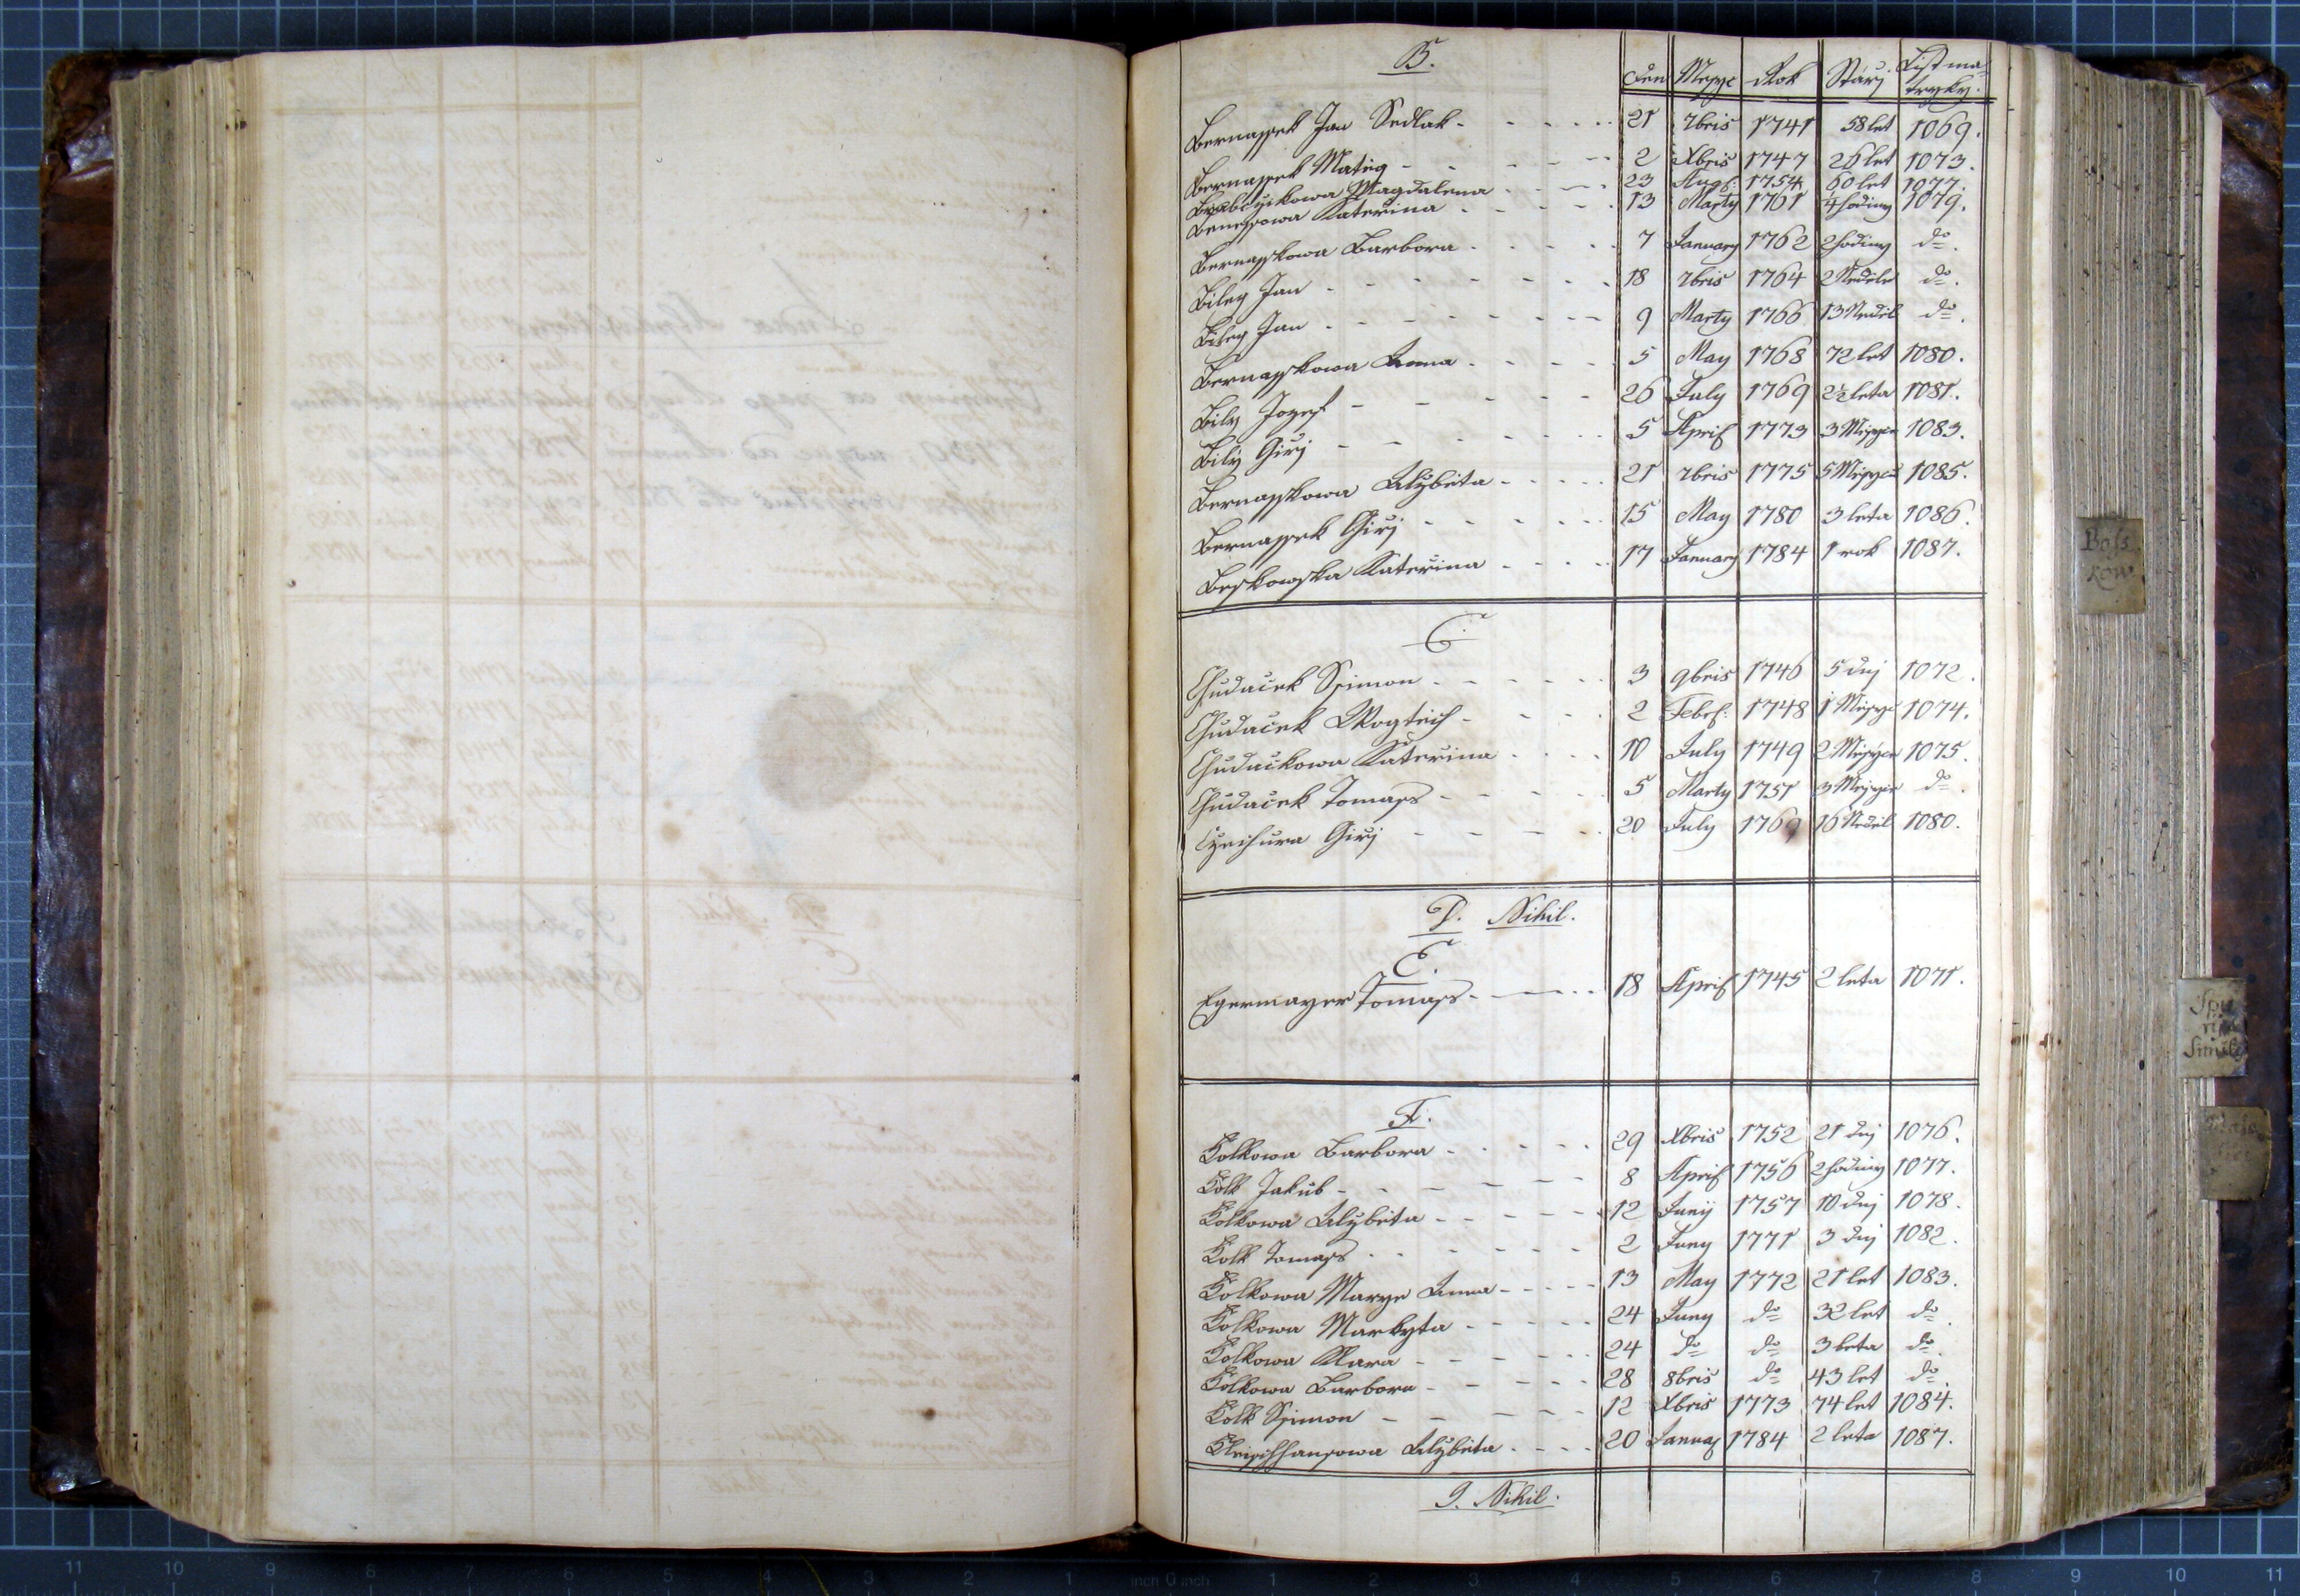 B.
Den Mesyc Rok Stárj List ma-
tryky.
Bernassek Jan Sedlak 21 7bris 1741 58 let 1069.
Bernassek Matieg 2 Xbris 1747 26 let 1073.
Magdalena 23 Aug: 1754 60 let 1077.
Benessowa Kateřina 13 Marty 1761 4 hodiny 1079.
Bernasskowa Barbora 7 January 1762 2 hodiny do.
Bileg Jan 18 7bris 1764 2 Nedele do.
Bileg Jan 9 Marty 1766 13 Nedel do.
Bernasskowa Anna 5 May 1768 72 let 1080.
Bily Jozef 26 July 1769 2½ leta 1081.
Bily Girj 5 April 1773 3 Mesyce 1083.
Bernasskowa Alzbeta 21 7bris 1775 5 Mesycu 1085.
Bernassek Girj 15 May 1780 3 leta 1086.
Beskowska Kateřina 17 January 1784 1 rok 1087.
C.
Chudaček Ssimon 3 9bris 1746 5 dnj 1072.
Chudaček Wogtěch 2 Febr: 1748 1 Mesyc 1074.
Chudačkowa Kateřina 10 July 1749 2 Mesyce 1075.
Chudaček Tomass 5 Marty 1751 3 Mesyce do.
Girj 20 July 1769 16 Nedel 1080.
D. Nihil.
E.
Egermayer Tomass 18 April 1745 2 leta 1071.
F.
Folkowa Barbora 29 Xbris 1752 21 dnj 1076.
Folk Jakub 8 April 1756 2 hodiny 1077.
Folkowa Alzbeta 12 Junÿ 1757 10 dnj 1078.
Folk Tomass 2 Juny 1771 3 dnj 1082.
Folkowa Marye Anna 13 May 1772 21 let 1083.
Folkowa Markyta 24 Juny do 32 let do.
Folkowa Klara 24 do do 3 leta do.
Folkowa Barbora 28 8bris do 43 let do.
Folk Ssimon 12 Xbris 1773 74 let 1084.
Fleischhansowa Alzbeta 20 Januar 1784 2 leta 1087.
G. Nihil.
Bols
kow